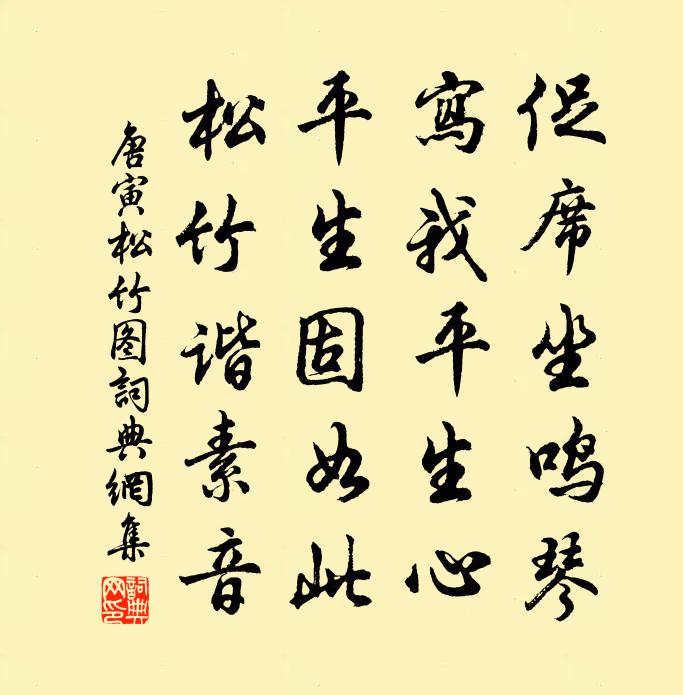 促席坐鸣琴
寫我平生心
平生固如此
松竹谐素音
唐寅松竹图詞典網集
詞典網印